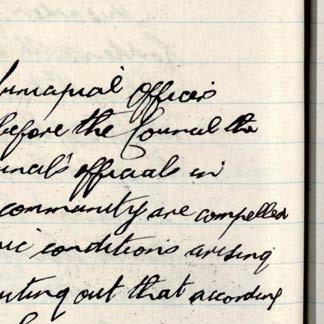 Municipal Officers
before the Council the
officials in
community are compelled
conditions arising
out that according